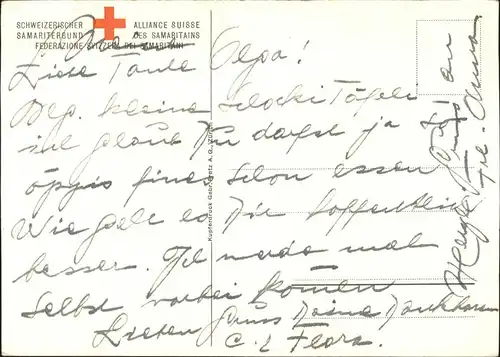 SCHWEIZERISCHER
SAMARITERBUND
FEDERAZIONE SVIZZERA DEI SAMARITANI
ALLIANCE SUISSE
DES SAMARITAINS
Liebe Tante Olga!
kleine Schocki Täfeli
ich glaub Du darfst ja
öppis fines schon essen
Wie geht es Dir hoffentlich
besser. Ich werde mal
selbst vorbei kommen
Lieben Gruss Deine Dankbare
Flora.
Kupferdruck Gebr. A.G.
Herzl. Gruss an
Frl. Anna